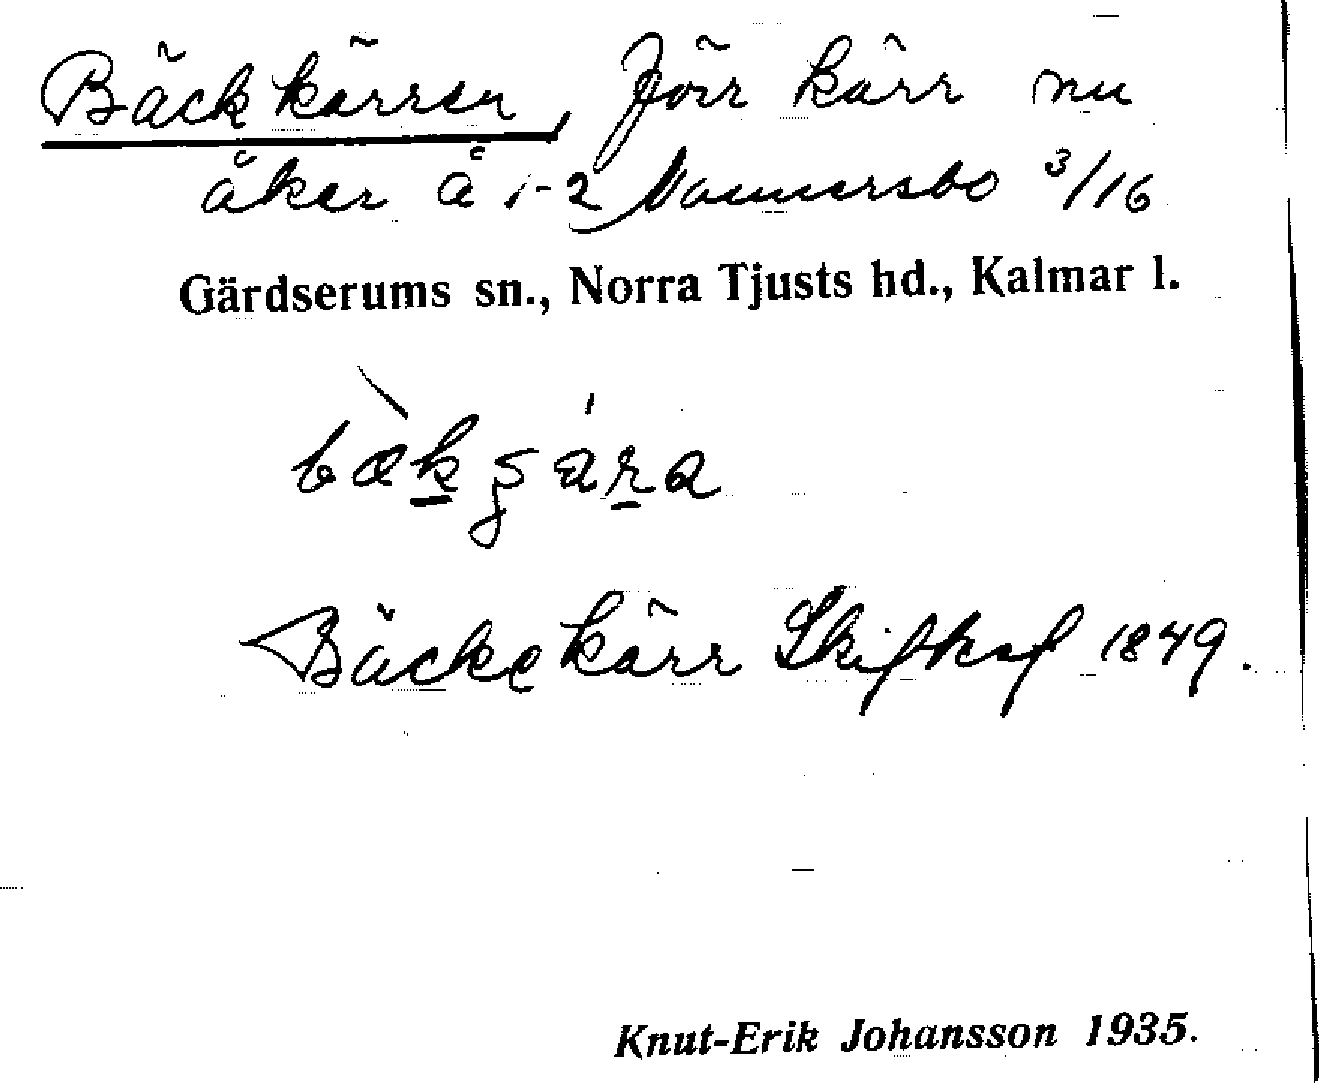 Bäckkärren, förr kärr nu
åker å 1-2 Nammersbo 3/16
Gärdserums sn., Norra Tjusts hd., Kalmar l.
bæk̠ʂár̠a
Bäckekärr Skifteskaf 1849.
Knut-Erik Johansson 1935.